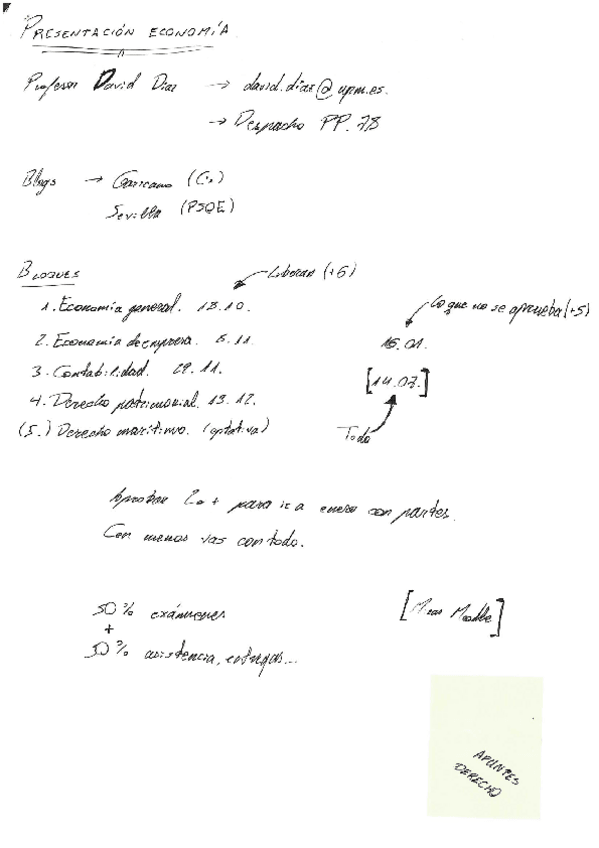 PRESENTACIÓN ECONOMÍA
Profesor David Diaz → david.diaz@upm.es.
→ Despacho PP.78
Blogs → Garicano (C's)
Sevilla (PSOE)
BLOQUES
Liberan (+6)
1. Economía general. 18.10.
Lo que no se aprueba (+5)
2. Economía de empresa. 8.11.
16.01.
3. Contabilidad. 29.11.
[14.07.]
4. Derecho patrimonial. 13.12.
(5.) Derecho marítimo. (optativa)
Todo
Aprobar 2 o + para ir a enero con partes.
Con menos vas con todo.
50% exámenes
+
50% asistencia, entregas...
[Mirar Moodle]
APUNTES
DERECHO